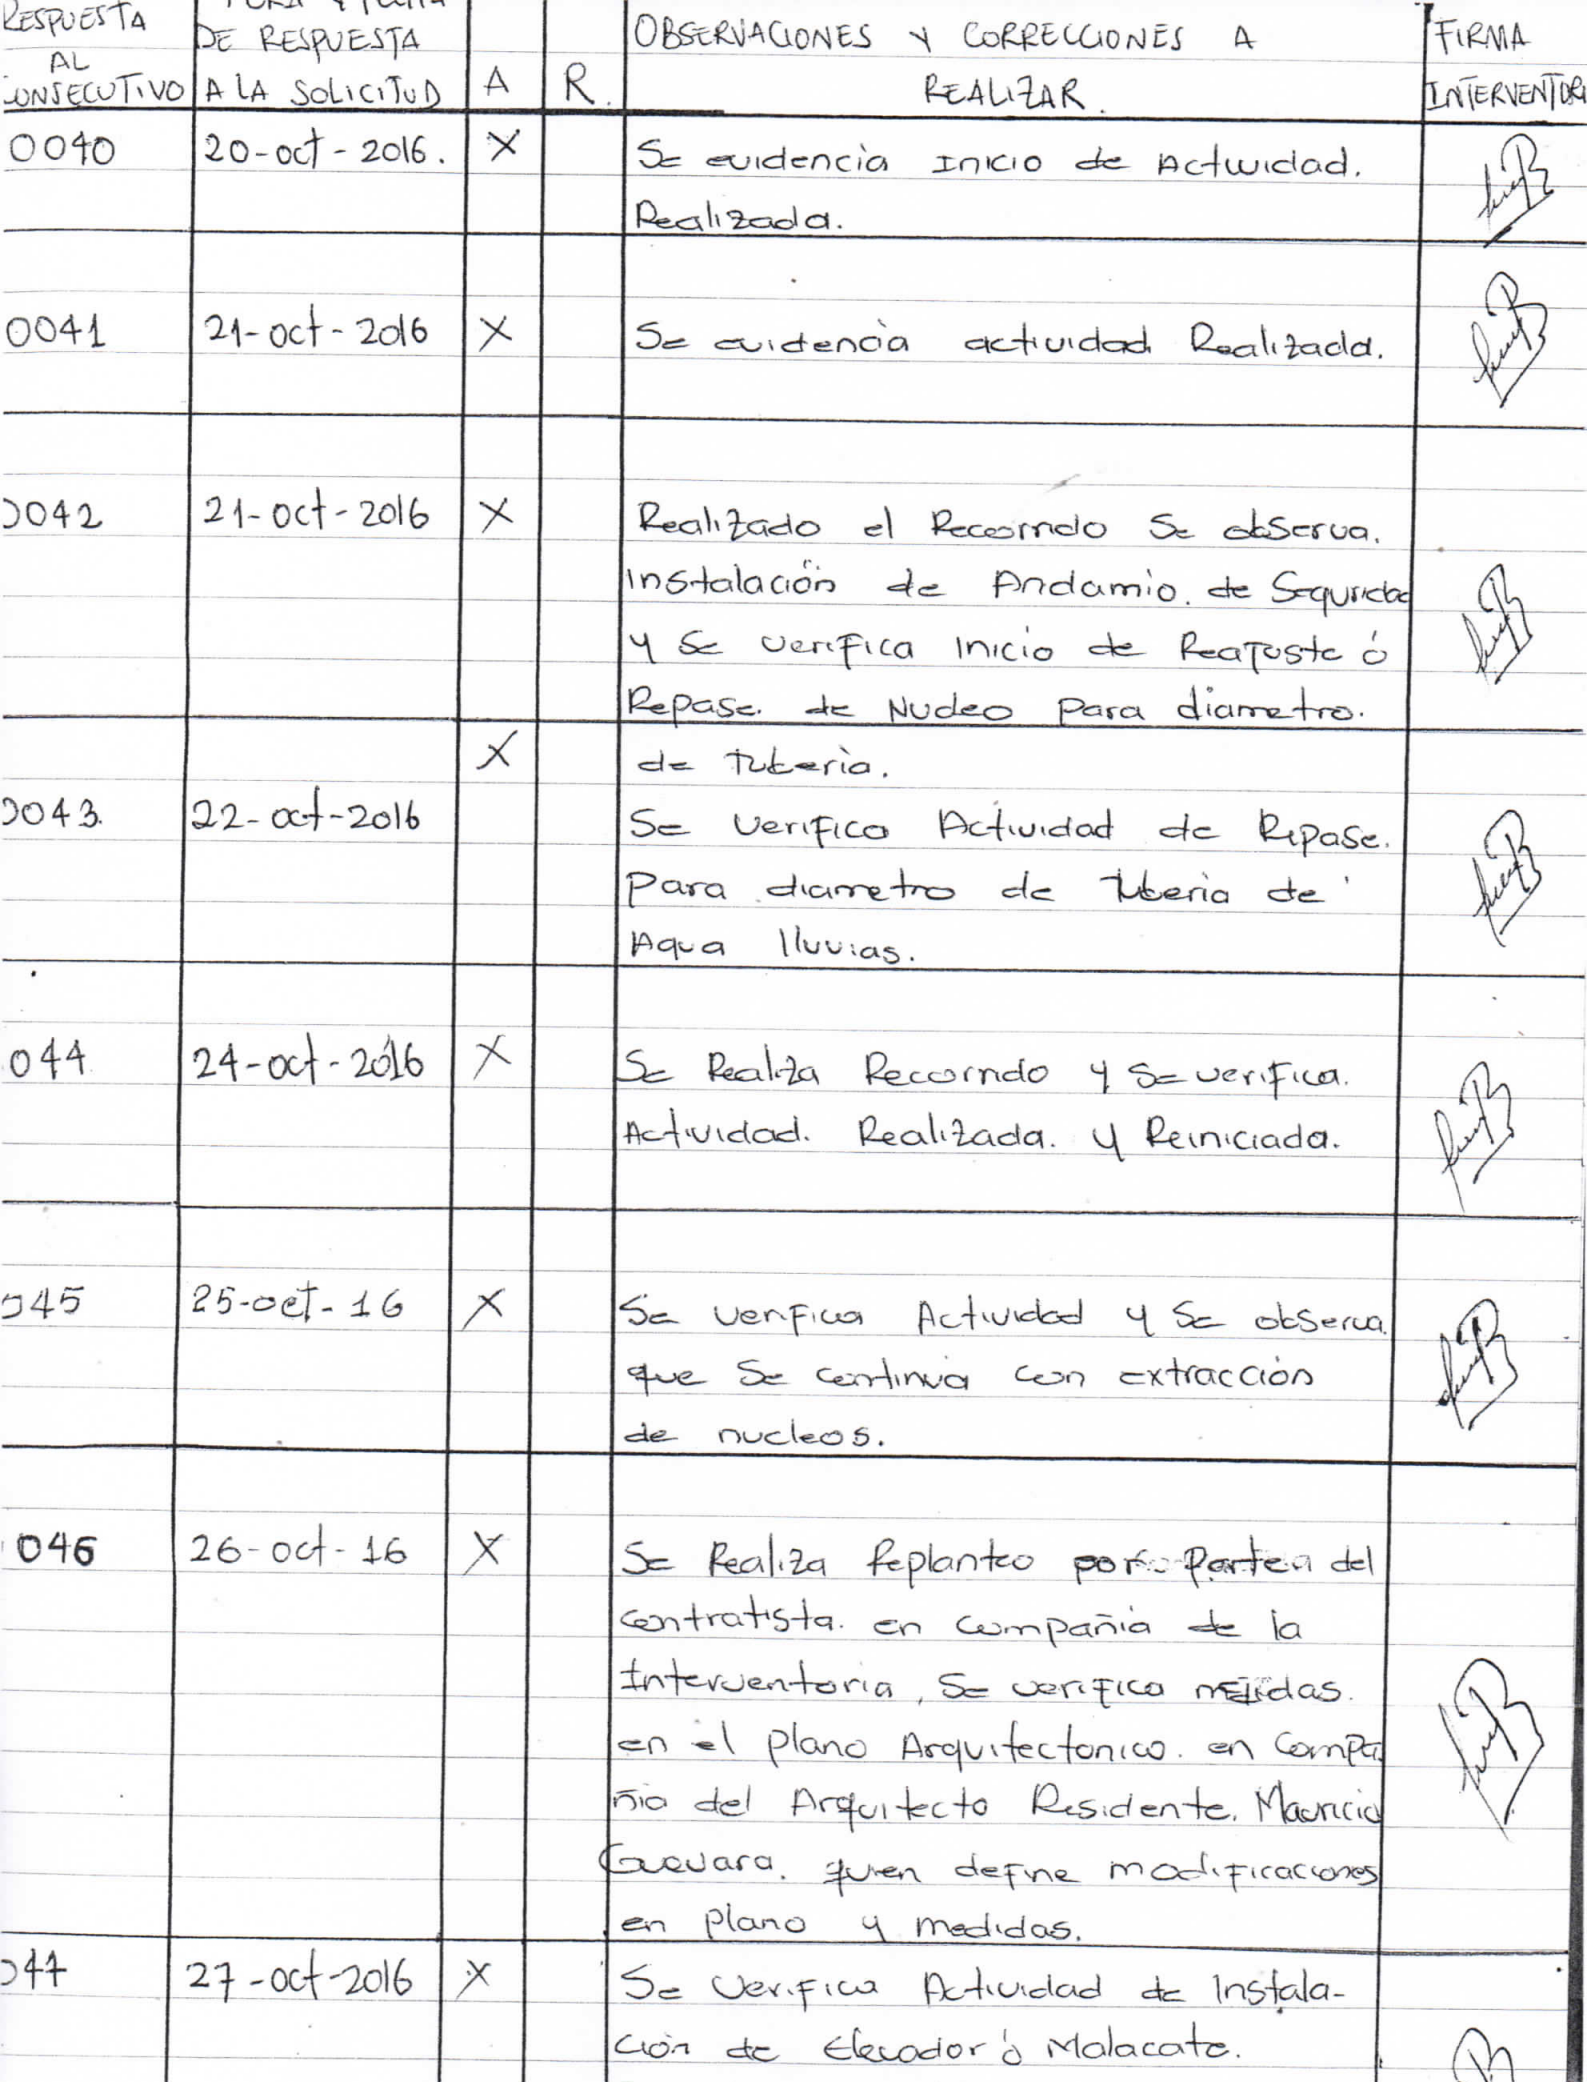 RESPUESTA
AL
CONSECUTIVO
DE RESPUESTA
A LA SOLICITUD
A
R.
OBSERVACIONES Y CORRECCIONES A
REALIZAR.
FIRMA
INTERVENTORI
0040 20-oct-2016. X Se evidencia Inicio de Actividad.
Realizada.
0041 21-oct-2016 X Se evidencia actividad Realizada.
0042 21-oct-2016 X Realizado el Recorrido Se observa.
Instalación de Andamio. de Seguridad
y Se verifica inicio de Reajuste ó
Repase. de Nucleo Para diametro.
X de tuberia.
0043. 22-oct-2016 Se Verifico Actividad de Repase.
Para diametro de tuberia de
Agua lluvias.
044 24-oct-2016 X Se Realiza Recorrido y Se verifica.
Actividad. Realizada. y Reiniciada.
045 25-oct-16 X Se verifica Actividad y Se observa.
que Se continua con extracción
de nucleos.
046 26-oct-16 X Se Realiza Replanteo por Parte del
contratista. en compañia de la
Interventoria, Se verifico medidas.
en el plano Arquitectonico. en Compa
ñia del Arquitecto Residente. Mauricio
Guevara. quien define modificaciones
en plano y medidas.
047 27-oct-2016 X Se Verifica Actividad de Instala-
ción de Elevador ó Malacate.